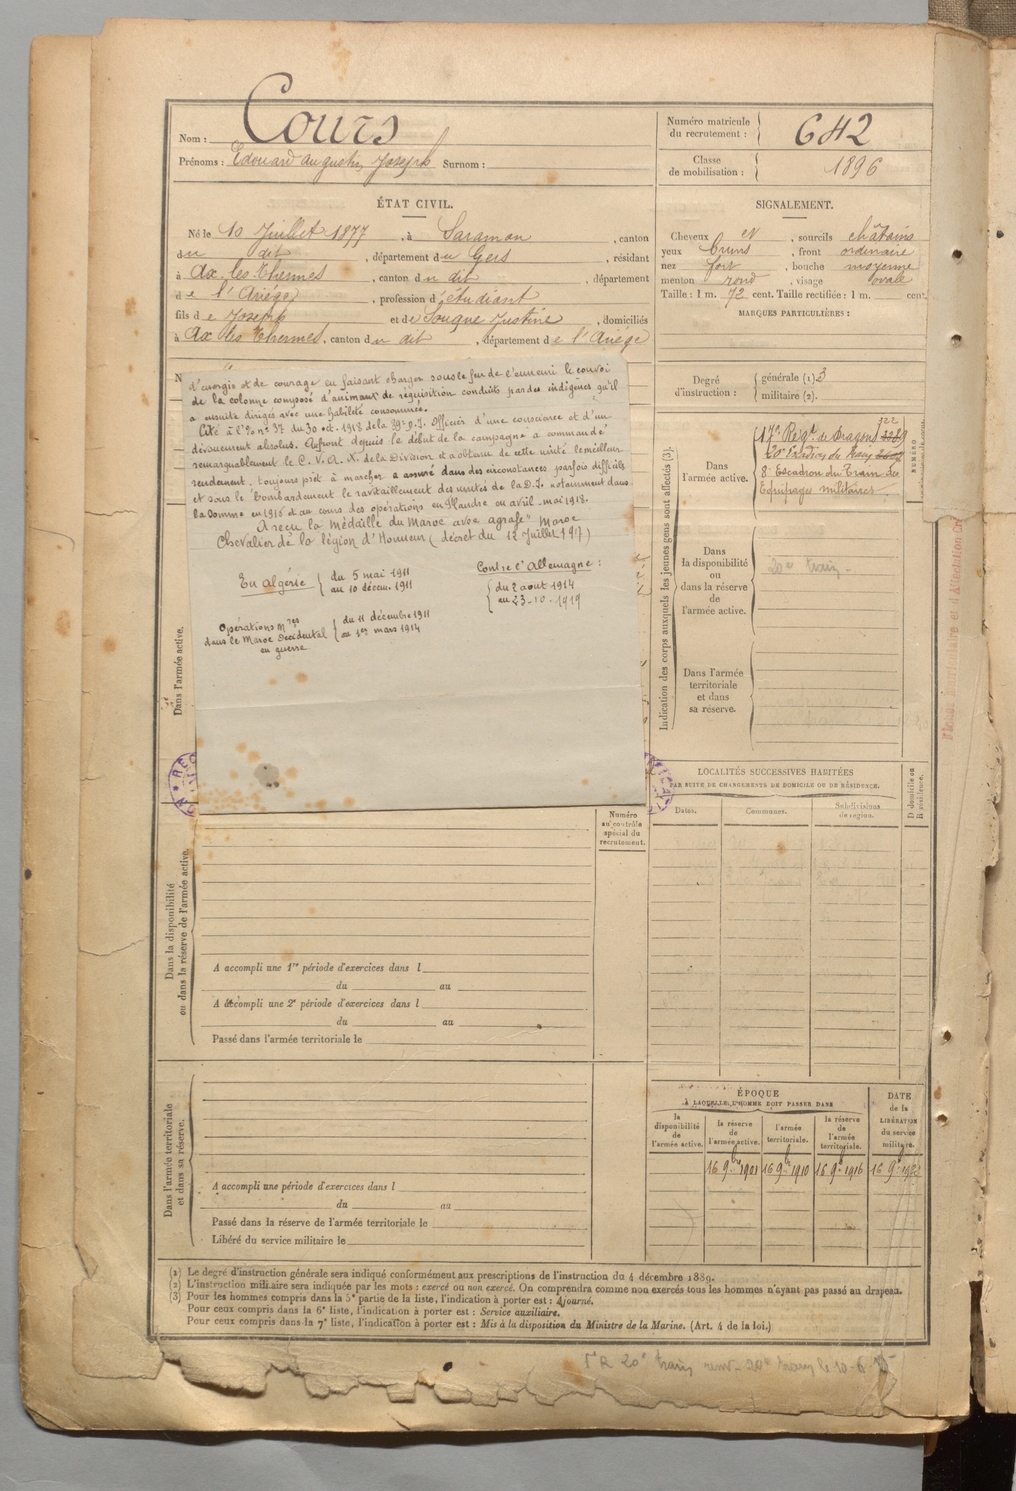 Nom : Cours
Prénoms : Edouard Augustin Joseph Surnom :
Numéro matricule du recrutement : 642
Classe de mobilisation : 1896
ÉTAT CIVIL.
Né le 10 Juillet 1877, à Saramon, canton
du dit, département du Gers, résidant
à Ax les Thermes, canton du dit, département
de l'Ariége, profession d'étudiant
fils de Joseph et de Souque Justine, domiciliés
à Ax les Thermes, canton du dit, département de l'Ariége
SIGNALEMENT.
Cheveux et, sourcils châtains
yeux bruns, front ordinaire
nez fort, bouche moyenne
menton rond, visage ovale
Taille : 1 m. 72 cent. Taille rectifiée : 1 m. cent.
MARQUES PARTICULIÈRES :
Degré d'instruction : générale (1) 3
militaire (2).
d'énergie et de courage en faisant charger sous le feu de l'ennemi le convoi
de la colonne composé d'animaux de réquisition conduits par des indigènes qu'il
a ensuite dirigés avec une habileté consommée.
Cité à l'O. n° 37 du 30 oct. 1918 de la 39e D.I. Officier d'une conscience et d'un
dévouement absolus. Au front depuis le début de la campagne a commandé
remarquablement le C.V.A.X. de la Division et a obtenu de cette unité le meilleur
rendement, toujours prêt à marcher a assuré dans des circonstances parfois difficiles
et sous le bombardement le ravitaillement des unités de la D.I. notamment dans
la Somme en 1916 et au cours des opérations en Flandre en avril-mai 1918.
A reçu la médaille du Maroc avec agrafe "Maroc
Chevalier de la légion d'Honneur (décret du 12 Juillet 1917)
En Algérie { du 5 mai 1911
au 10 décem. 1911
Contre l'Allemagne :
{ du 2 aout 1914
au 23-10-1919
Opérations Mres
dans le Maroc Occidental
en guerre
{ du 11 décembre 1911
au 1er mars 1914
Indication des corps auxquels les jeunes gens sont affectés (3).
Dans l'armée active.
17e Régt de Dragons 722
20e Escadron du Train
8e Escadron du Train des
Equipages militaires
NUMÉRO
Dans la disponibilité ou dans la réserve de l'armée active.
20e train
Dans l'armée territoriale et dans sa réserve.
Dans l'armée active.
LOCALITÉS SUCCESSIVES HABITÉES
PAR SUITE DE CHANGEMENTS DE DOMICILE OU DE RÉSIDENCE.
Dates. Communes. Subdivisions de région. D domicile ou R résidence.
Numéro au contrôle spécial du recrutement.
Dans la disponibilité ou dans la réserve de l'armée active.
A accompli une 1re période d'exercices dans l
du au
A accompli une 2e période d'exercices dans l
du au
Passé dans l'armée territoriale le
ÉPOQUE
À LAQUELLE L'HOMME DOIT PASSER DANS
la disponibilité de l'armée active.
la réserve de l'armée active.
l'armée territoriale.
la réserve de l'armée territoriale.
DATE de la LIBÉRATION du service militaire.
16 9bre 1901 16 9b 1910 16 9b 1916 16 9b 1922
Dans l'armée territoriale et dans sa réserve.
A accompli une période d'exercices dans l
du au
Passé dans la réserve de l'armée territoriale le
Libéré du service militaire le
(1) Le degré d'instruction générale sera indiqué conformément aux prescriptions de l'instruction du 4 décembre 1889.
(2) L'instruction militaire sera indiquée par les mots : exercé ou non exercé. On comprendra comme non exercés tous les hommes n'ayant pas passé au drapeau.
(3) Pour les hommes compris dans la 5e partie de la liste, l'indication à porter est : Ajourné.
Pour ceux compris dans la 6e liste, l'indication à porter est : Service auxiliaire.
Pour ceux compris dans la 7e liste, l'indication à porter est : Mis à la disposition du Ministre de la Marine. (Art. 4 de la loi.)
20e train